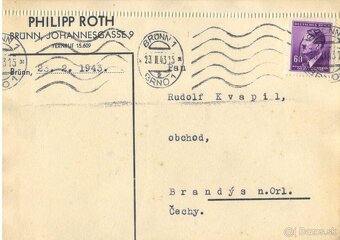 PHILIPP ROTH
BRÜNN, JOHANNESGASSE 9
FERNRUF 15.609
Brünn, 23. 2. 1943.
BRÜNN 1
23. II. 43. 15
BRNO 1
60
Pan
Rudolf Kvapil,
obchod,
Brandýs n.Orl.
Čechy.
bazos.sk